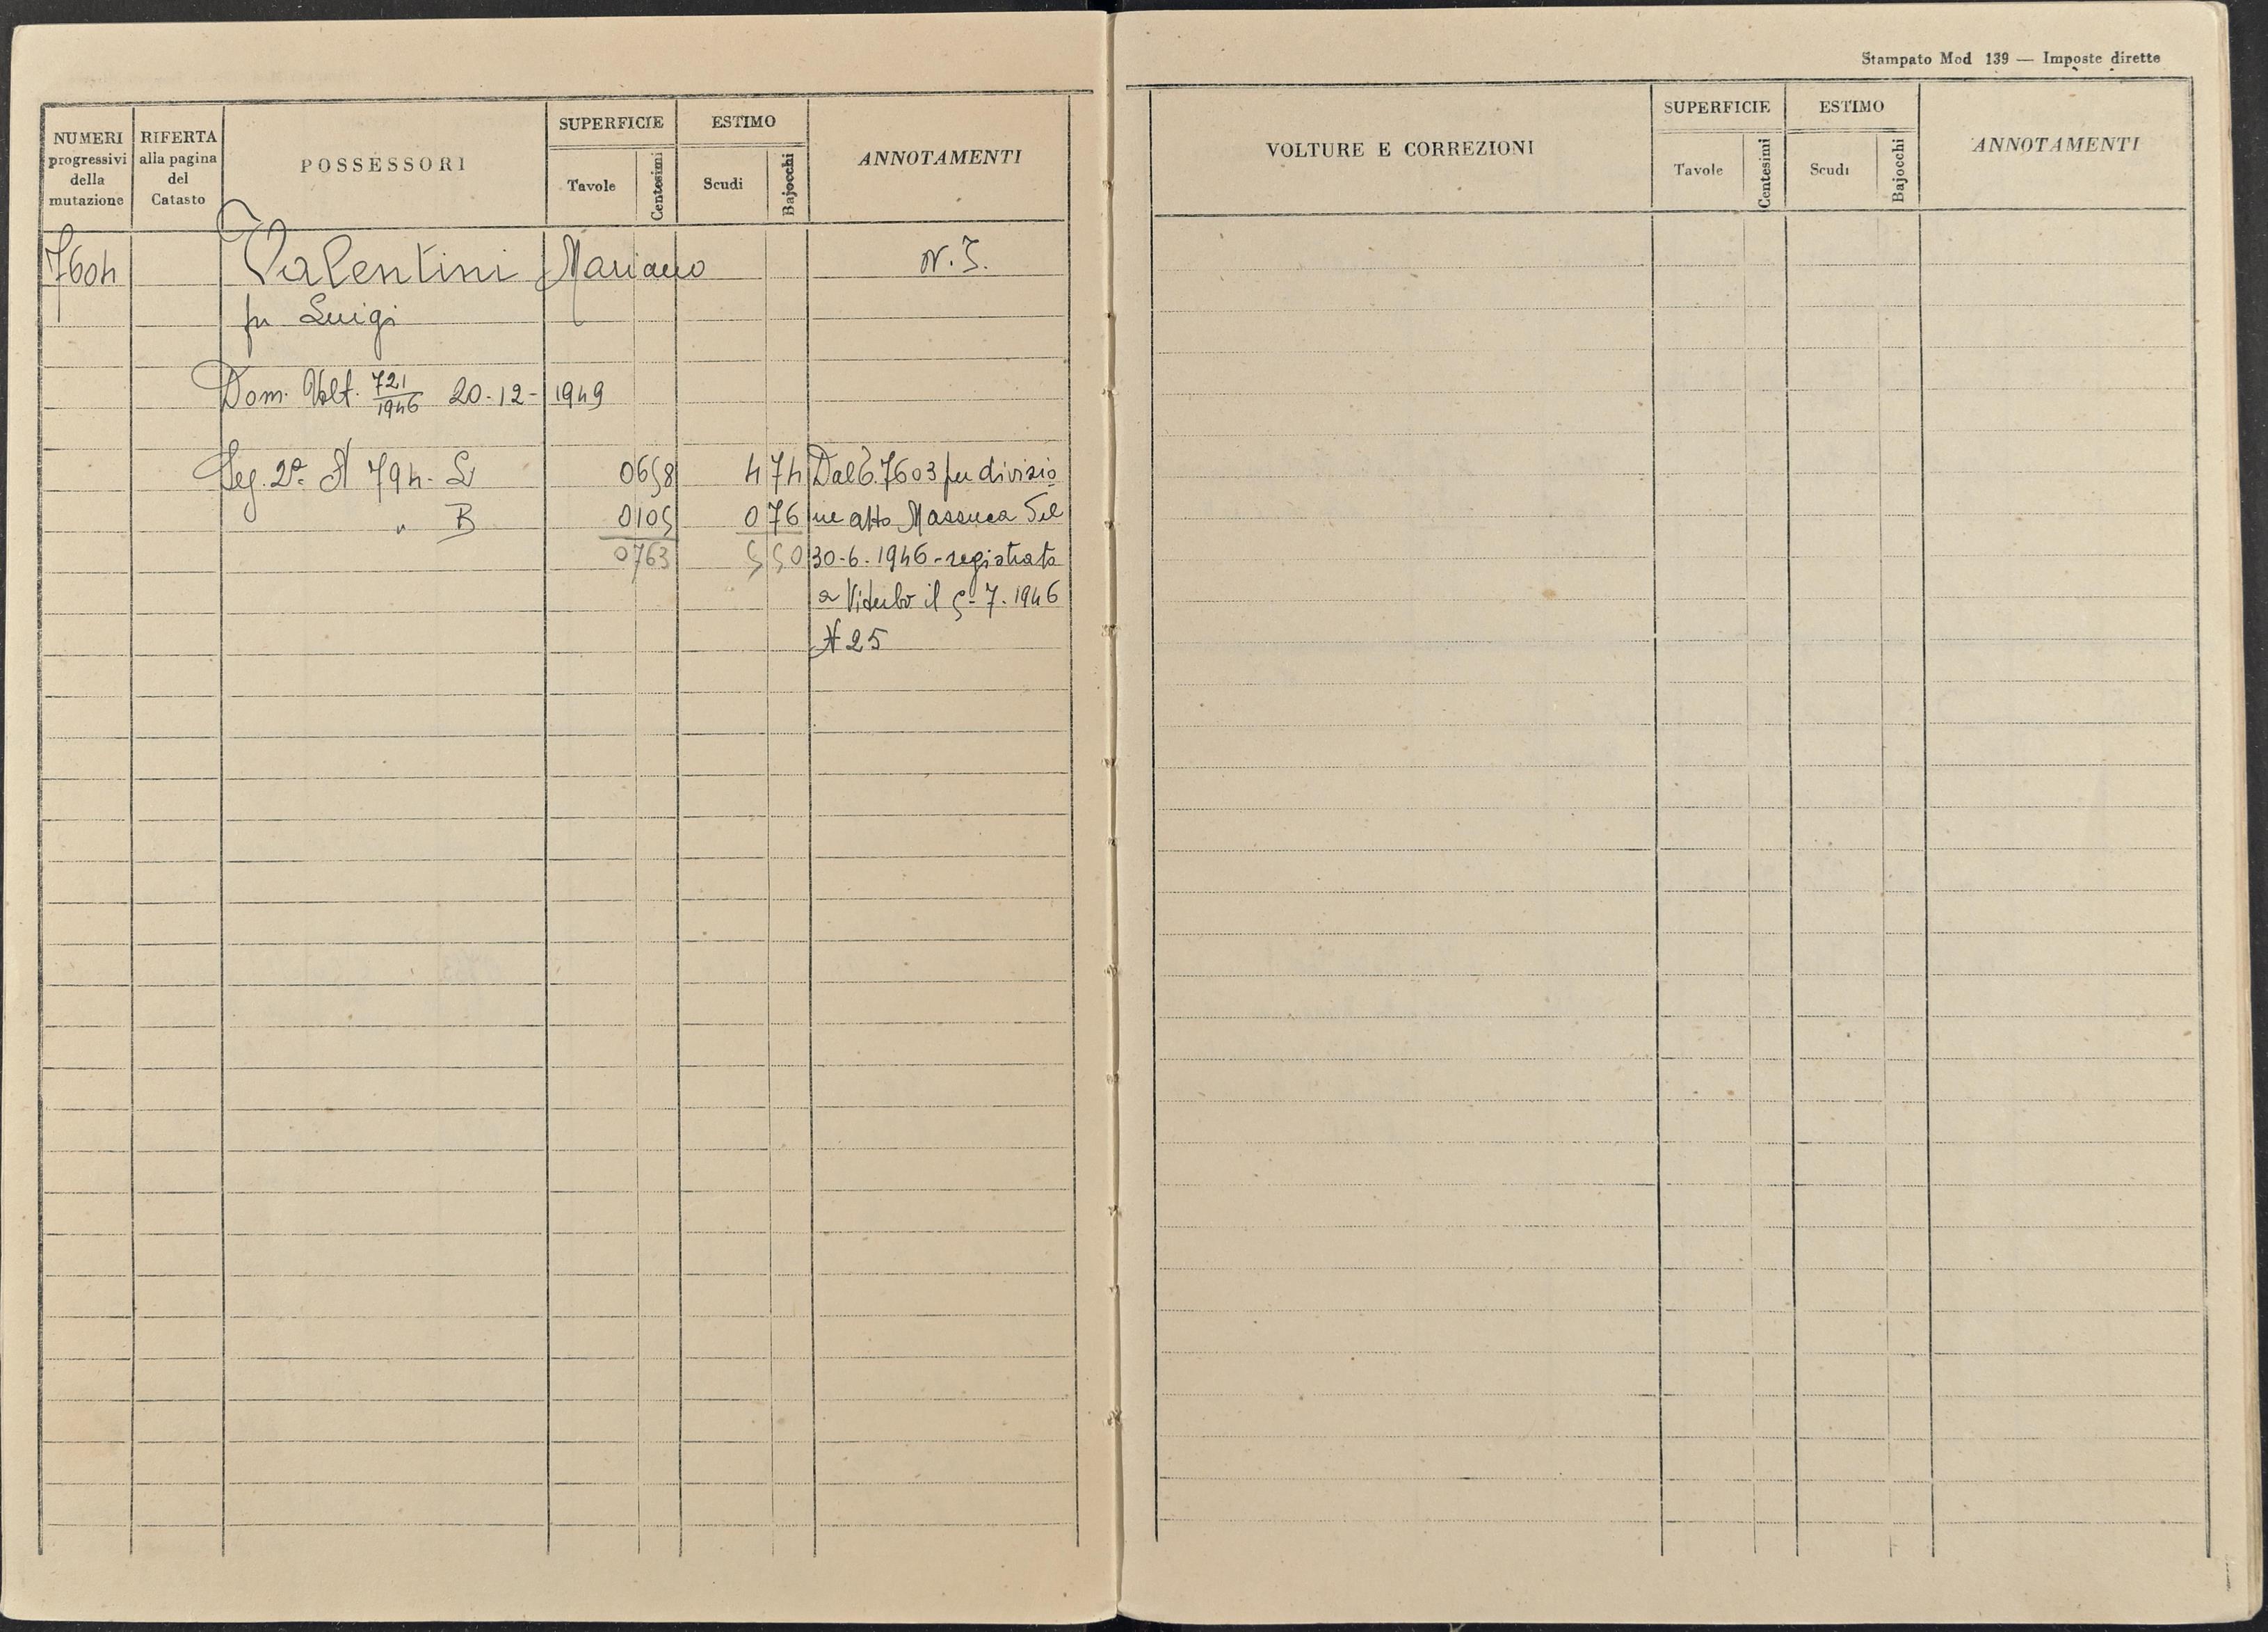 Stampato Mod 139 — Imposte dirette
NUMERI progressivi della mutazione
RIFERTA alla pagina del Catasto
POSSESSORI
SUPERFICIE
Tavole
Centesimi
ESTIMO
Scudi
Bajocchi
ANNOTAMENTI
7604 Valentini Mariano
fu Luigi
Dom. Volt. 721/1946 20-12-1949
Seg. 2ª N 794
" B
0658 4 74
0105 0 76
0763 5 50
Dal 7603 per divisio
ne atto Massuca del
30-6-1946 - registrato
a Viterbo il 5-7-1946
N 25
VOLTURE E CORREZIONI
SUPERFICIE
Tavole
Centesimi
ESTIMO
Scudi
Bajocchi
ANNOTAMENTI